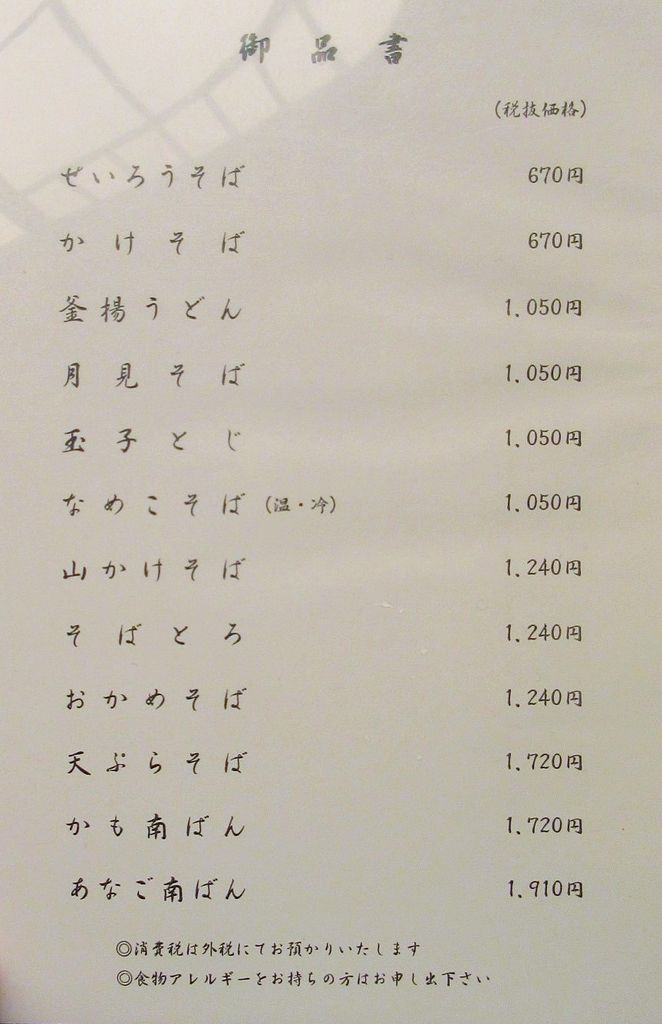 御品書
(税抜価格)
せいろうそば 670円
かけそば 670円
釜揚うどん 1,050円
月見そば 1,050円
玉子とじ 1,050円
なめこそば (温・冷) 1,050円
山かけそば 1,240円
そばとろ 1,240円
おかめそば 1,240円
天ぷらそば 1,720円
かも南ばん 1,720円
あなご南ばん 1,910円
◎消費税は外税にてお預かりいたします
◎食物アレルギーをお持ちの方はお申し出下さい